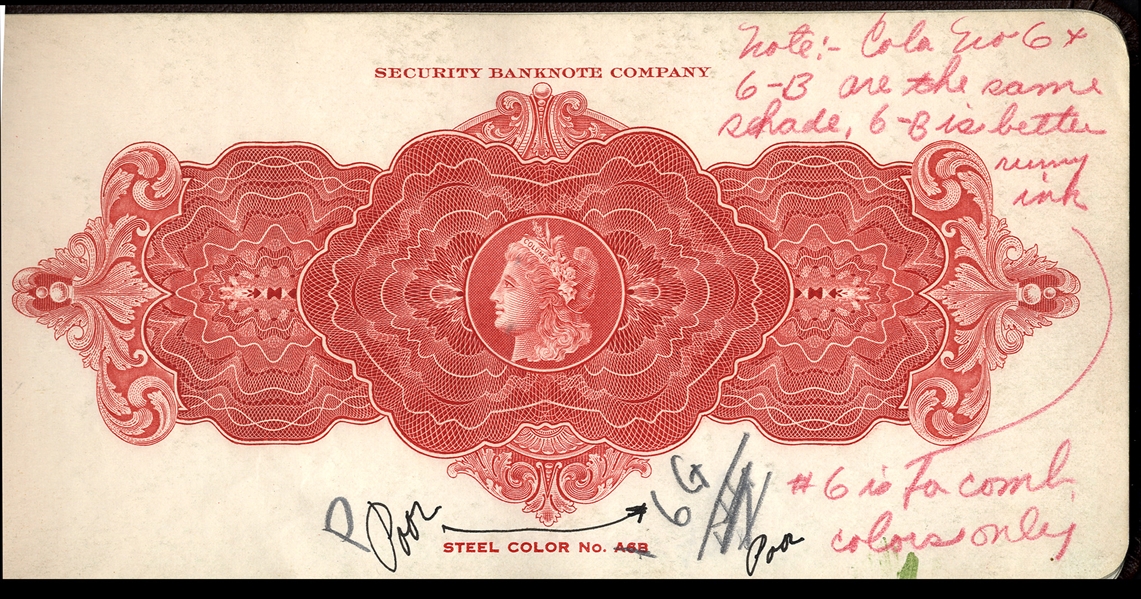 Note:- Cola No 6 +
6-B are the same
shade, 6-B is better
runny
ink
SECURITY BANKNOTE COMPANY
#6 is Fa comb.
colors only
P Poor 6G Poor
STEEL COLOR No. A6B